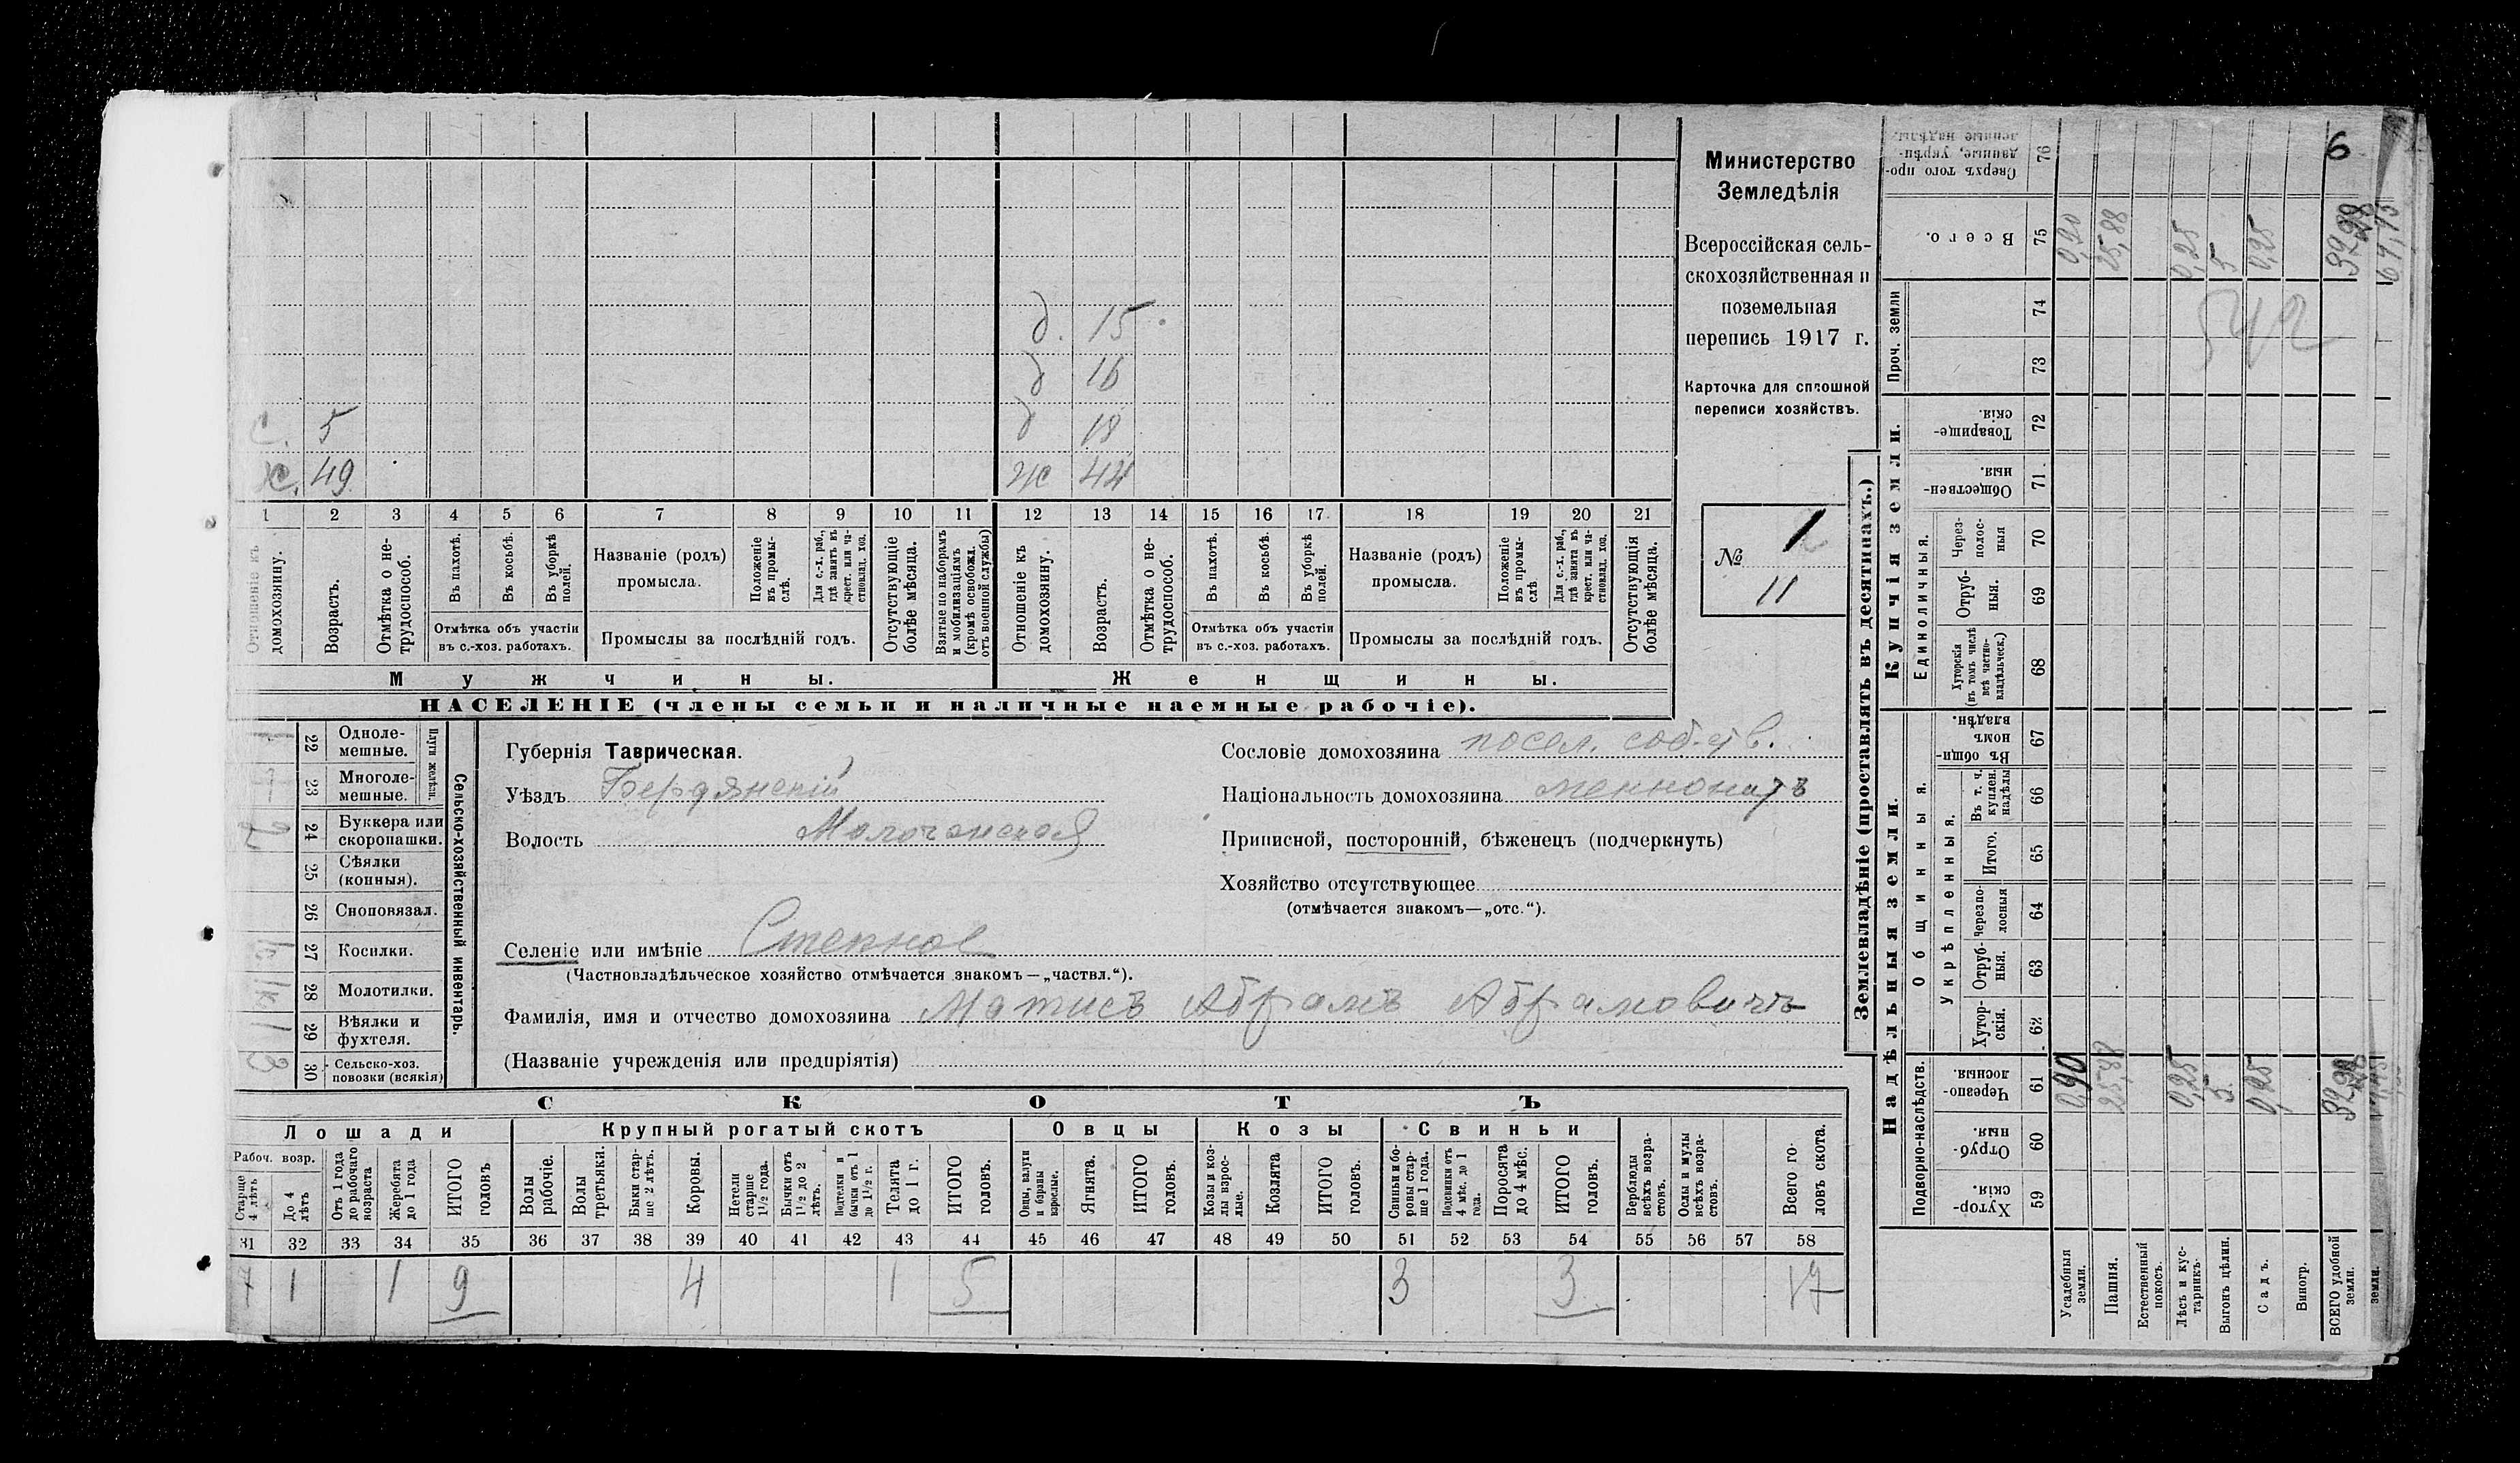 6
д. 15.
д 16
с. 5 д 18
х. 49 ж 44
1 2 3 4 5 6 7 8 9 10 11 12 13 14 15 16 17 18 19 20 21
Отношеніе къ домохозяину.
Возрастъ.
Отмѣтка о нетрудоспособ.
Въ пахотѣ.
Въ косьбѣ.
Въ уборкѣ полей.
Отмѣтка объ участіи
въ с.-хоз. работахъ.
Названіе (родъ)
промысла.
Положеніе въ промыслѣ.
Для с.-х. раб., гдѣ занятъ въ крест. или частновлад. хоз.
Промыслы за послѣдній годъ.
Отсутствующіе болѣе мѣсяца.
Взятые по наборамъ и мобилизаціямъ (кромѣ освобожд. отъ военной службы)
Отношеніе къ домохозяину.
Возрастъ.
Отмѣтка о нетрудоспособ.
Въ пахотѣ.
Въ косьбѣ.
Въ уборкѣ полей.
Отмѣтка объ участіи
въ с.-хоз. работахъ.
Названіе (родъ)
промысла.
Положеніе въ промыслѣ
Для с.-х. раб., гдѣ занята въ крест. или частновлад. хоз.
Промыслы за послѣдній годъ.
Отсутствующія болѣе мѣсяца.
Мужчины. Женщины.
НАСЕЛЕНІЕ (члены семьи и наличные наемные рабочіе).
Министерство
Земледѣлія
Всероссійская сель-
скохозяйственная и
поземельная
перепись 1917 г.
Карточка для сплошной
переписи хозяйствъ.
№ 1
11
Сельско-хозяйственный инвентарь.
Плуги желѣзн.
22 Одноле-
мешные.
23 Многоле-
мешные.
24 Буккера или
скоропашки.
25 Сѣялки
(конныя).
26 Сноповязал.
27 Косилки.
28 Молотилки.
29 Вѣялки и
фухтеля.
30 Сельско-хоз.
повозки (всякія)
Губернія Таврическая.
Уѣздъ Бердянскій
Волость Молочанская
Селеніе или имѣніе Степное
(Частновладѣльческое хозяйство отмѣчается знакомъ—„частвл.“).
Фамилія, имя и отчество домохозяина Матисъ Абрамъ Абрамовичъ
(Названіе учрежденія или предпріятія)
Сословіе домохозяина посел. соб-тв.
Національность домохозяина меннонитъ
Приписной, посторонній, бѣженецъ (подчеркнуть)
Хозяйство отсутствующее
(отмѣчается знакомъ—„отс.“).
СКОТЪ
Лошади Крупный рогатый скотъ Овцы Козы Свиньи
Рабоч. возр.
Старше 4 лѣтъ
До 4 лѣтъ
Отъ 1 года до рабочаго возраста
Жеребята до 1 года
ИТОГО головъ
Волы рабочіе.
Волы третьяки.
Быки старше 2 лѣтъ.
Коровы.
Нетели старше 1½ года.
Бычки отъ 1½ до 2 лѣтъ.
Подтелки и бычки отъ 1 до 1½ г.
Телята до 1 г.
ИТОГО головъ.
Овцы, валухи и бараны взрослые.
Ягнята.
ИТОГО головъ.
Козы и козлы взрослые.
Козлята
ИТОГО головъ.
Свиньи и боровы старше 1 года.
Подсвинки отъ 4 мѣс. до 1 года.
Поросята до 4 мѣс.
ИТОГО головъ.
Верблюды всѣхъ возрастовъ.
Ослы и мулы всѣхъ возрастовъ.
Всего головъ скота.
31 32 33 34 35 36 37 38 39 40 41 42 43 44 45 46 47 48 49 50 51 52 53 54 55 56 57 58
7 1 1 9 4 1 5 3 3 17
Землевладѣніе (проставлять въ десятинахъ.)
Надѣльныя земли. Купчія земли.
Проч. земли
Подворно-наслѣдств.
Общинныя.
Укрѣпленныя.
Единоличныя.
Хуторскія. 59
Отрубныя. 60
Черезполосныя. 61
Хуторскія. 62
Отрубныя. 63
Черезполосныя 64
Итого. 65
Въ т. ч. куплен. надѣлы 66
Въ общинномъ владѣн. 67
Хуторскія (въ томъ числѣ всѣ частновладѣльческ.) 68
Отрубныя. 69
Черезполосныя 70
Общественныя. 71
Товарищескія. 72
73
74
Всего. 75
Сверхъ того проданные, укрѣпленные надѣлы. 76
Усадебныя земли. 0,90
Пашня. 25,88 25,88
Естественный покосъ.
Лѣсъ и кустарникъ. 0,25 0,25
Выгонъ цѣлин. 5 5
Садъ. 0,25 0,25
Виногр.
ВСЕГО удобной земли.
земли.
542